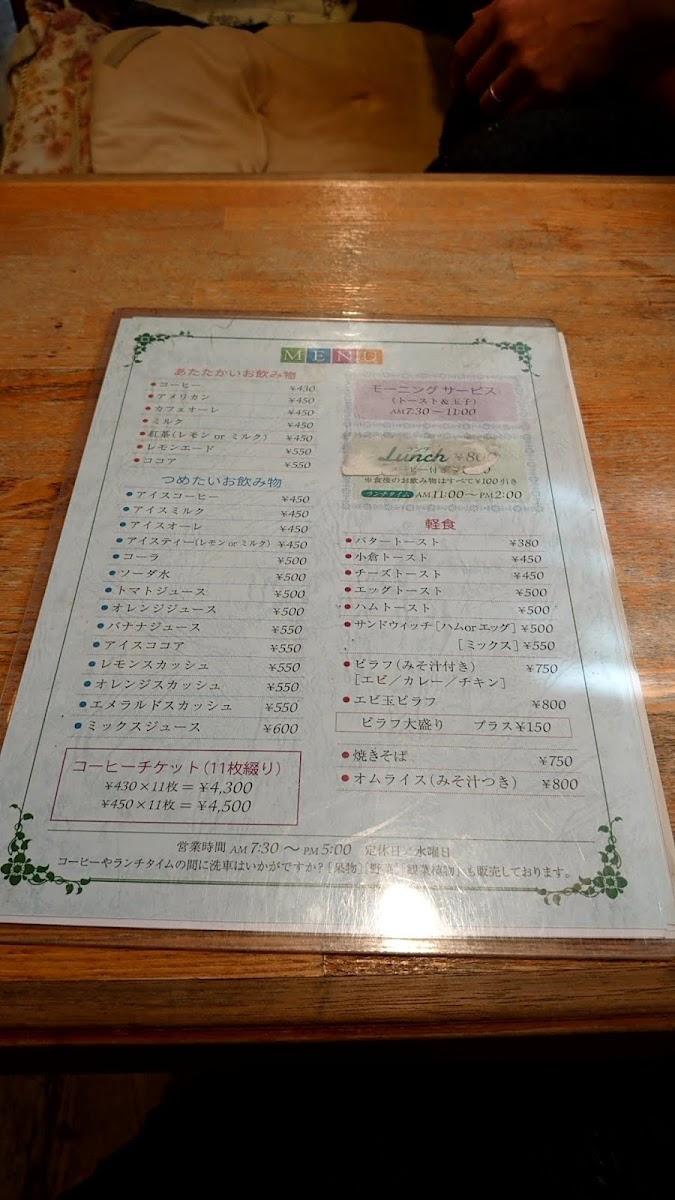 MENU
あたたかいお飲み物
コーヒー ¥430
アメリカン ¥450
カフェオーレ ¥450
ミルク ¥450
紅茶(レモン or ミルク) ¥450
レモンエード ¥550
ココア ¥550
つめたいお飲み物
アイスコーヒー ¥450
アイスミルク ¥450
アイスオーレ ¥450
アイスティー(レモン or ミルク) ¥450
コーラ ¥500
ソーダ水 ¥500
トマトジュース ¥500
オレンジジュース ¥500
バナナジュース ¥550
アイスココア ¥550
レモンスカッシュ ¥550
オレンジスカッシュ ¥550
エメラルドスカッシュ ¥550
ミックスジュース ¥600
コーヒーチケット(11枚綴り)
¥430×11枚=¥4,300
¥450×11枚=¥4,500
モーニング サービス
(トースト&玉子)
AM7:30〜11:00
Lunch ¥800
※食後のお飲み物はすべて¥100引き
ランチタイム AM11:00〜PM2:00
軽食
バタートースト ¥380
小倉トースト ¥450
チーズトースト ¥450
エッグトースト ¥500
ハムトースト ¥500
サンドウィッチ[ハムorエッグ] ¥500
[ミックス] ¥550
ピラフ(みそ汁付き) ¥750
[エビ/カレー/チキン]
エビ玉ピラフ ¥800
ピラフ大盛り プラス¥150
焼きそば ¥750
オムライス(みそ汁つき) ¥800
営業時間 AM7:30〜PM5:00 定休日/水曜日
コーヒーやランチタイムの間に洗車はいかがですか?[果物][野菜][観葉植物]も販売しております。